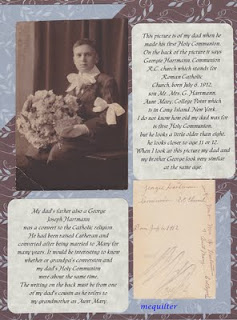 This picture is of my dad when he
made his first Holy Communion.
On the back of the picture it says
Georgie Harrmann Communion
R.C. church which stands for
Roman Catholic
Church, born July 6, 1912,
son Mr. Mrs. G. Harrmann,
Aunt Mary, College Point which
is in Long Island New York.
I do not know how old my dad was for
is first Holy Communion,
but he looks a little older than eight,
he looks closer to age 11 or 12.
When I look at this picture my dad and
my brother George look very similar
at the same age.
My dad's father also a George
Joseph Harrmann
was a convert to the Catholic religion
He had been raised Lutheran and
converted after being married to Mary for
many years. It would be interesting to know
whether or grandpa's conversion and
my dad's Holy Communion
were about the same time.
The writing on the back must be from one
of my dad's cousin as he refers to
my grandmother as Aunt Mary.
Georgie Harrmann
Communion R.C. Church
Born July 6 1912
mequilter